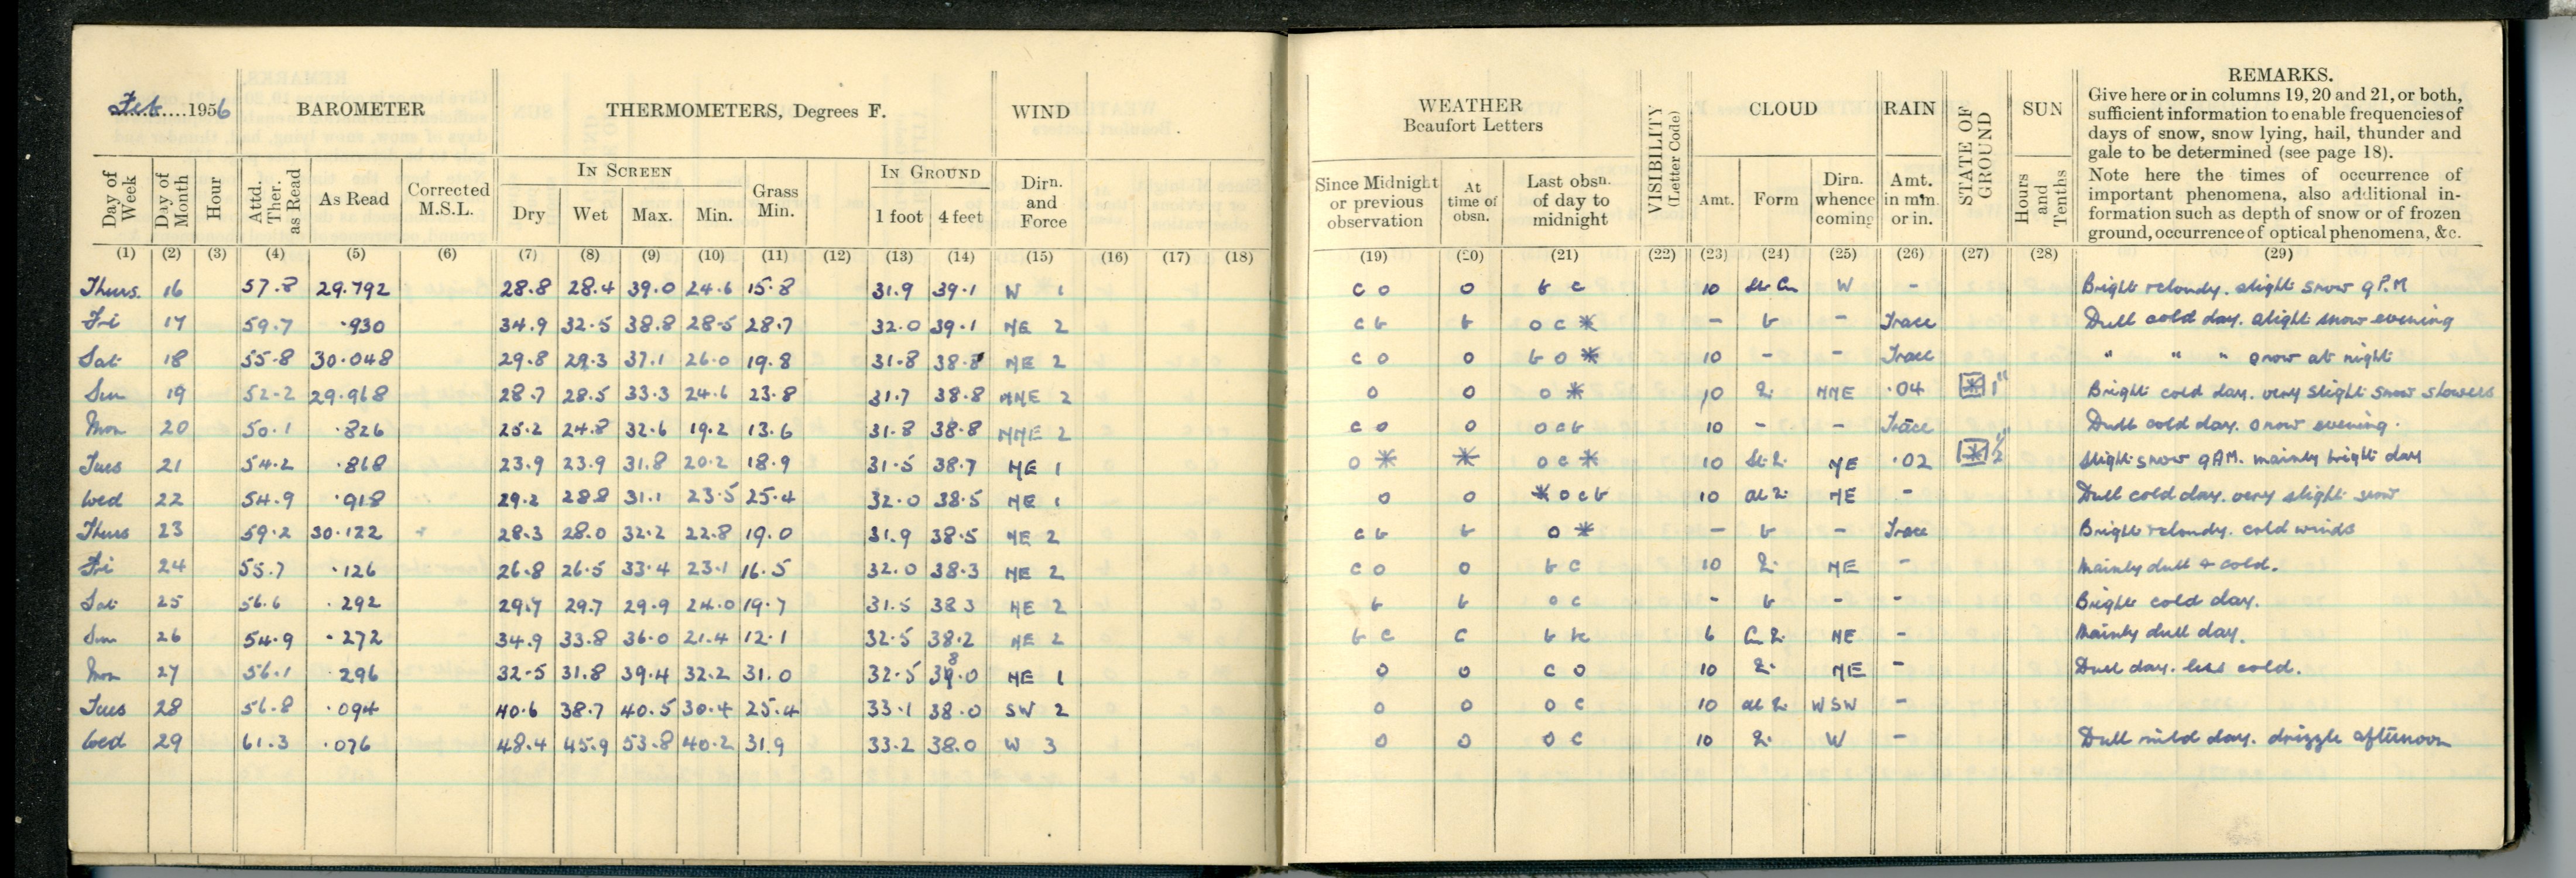 Feb 1956 BAROMETER THERMOMETERS, Degrees F. WIND WEATHER Beaufort Letters VISIBILITY (Letter Code) CLOUD RAIN STATE OF GROUND SUN REMARKS.
Give here or in columns 19, 20 and 21, or both,
sufficient information to enable frequencies of
days of snow, snow lying, hail, thunder and
gale to be determined (see page 18).
Note here the times of occurrence of
important phenomena, also additional in-
formation such as depth of snow or of frozen
ground, occurrence of optical phenomena, &c.
IN SCREEN IN GROUND
Day of Week Day of Month Hour Attd. Ther. as Read As Read Corrected M.S.L. Dry Wet Max. Min. Grass Min. 1 foot 4 feet Dirn. and Force Since Midnight or previous observation At time of obsn. Last obsn. of day to midnight Amt. Form Dirn. whence coming Amt. in mm. or in. Hours and Tenths
(1) (2) (3) (4) (5) (6) (7) (8) (9) (10) (11) (12) (13) (14) (15) (16) (17) (18) (19) (20) (21) (22) (23) (24) (25) (26) (27) (28) (29)
Thurs. 16 57.8 29.792 28.8 28.4 39.0 24.6 15.8 31.9 39.1 W 1 c o o b c 10 St Cu W - Bright + cloudy. slight snow 9 P.M
Fri 17 59.7 .930 34.9 32.5 38.8 28.5 28.7 32.0 39.1 NE 2 c b b o c * - b - Trace Dull cold day. slight snow evening
Sat 18 55.8 30.048 29.8 29.3 37.1 26.0 19.8 31.8 38.8 NE 2 c o o b o * 10 - - Trace " " " snow at night
Sun 19 52.2 29.968 28.7 28.5 33.3 24.6 23.8 31.7 38.8 NNE 2 o o o * 10 NNE .04 * 1" Bright cold day. very slight snow showers
Mon 20 50.1 .826 25.2 24.8 32.6 19.2 13.6 31.8 38.8 NNE 2 c o o o c b 10 - - Trace Dull cold day. snow evening.
Tues 21 54.2 .868 23.9 23.9 31.8 20.2 18.9 31.5 38.7 NE 1 o * * o c * 10 NE .02 * ½" slight snow 9AM. mainly bright day
Wed 22 54.9 .918 29.2 28.8 31.1 23.5 25.4 32.0 38.5 NE 1 o o * o c b 10 NE - Dull cold day. very slight snow
Thurs 23 59.2 30.122 28.3 28.0 32.2 22.8 19.0 31.9 38.5 NE 2 c b b o * - b - Trace Bright + cloudy. cold winds
Fri 24 55.7 .126 26.8 26.5 33.4 23.1 16.5 32.0 38.3 NE 2 c o o b c 10 NE - Mainly dull + cold.
Sat 25 56.6 .292 29.7 29.7 29.9 24.0 19.7 31.5 38 3 NE 2 b b o c - b - - Bright cold day.
Sun 26 54.9 .272 34.9 33.8 36.0 21.4 12.1 32.5 38.2 NE 2 b c c b 6 Cu NE - Mainly dull day.
Mon 27 56.1 .296 32.5 31.8 39.4 32.2 31.0 32.5 38.0 NE 1 o o c o 10 NE - Dull day. less cold.
Tues 28 56.8 .094 40.6 38.7 40.5 30.4 25.4 33.1 38.0 SW 2 o o o c 10 WSW -
Wed 29 61.3 .076 48.4 45.9 53.8 40.2 31.9 33.2 38.0 W 3 o o o c 10 W - Dull mild day. drizzle afternoon